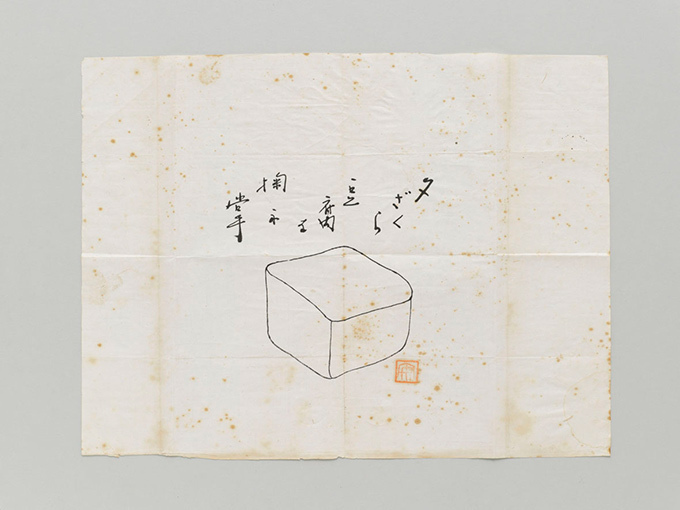 夕ざくら
豆腐を
掬ふ
掌